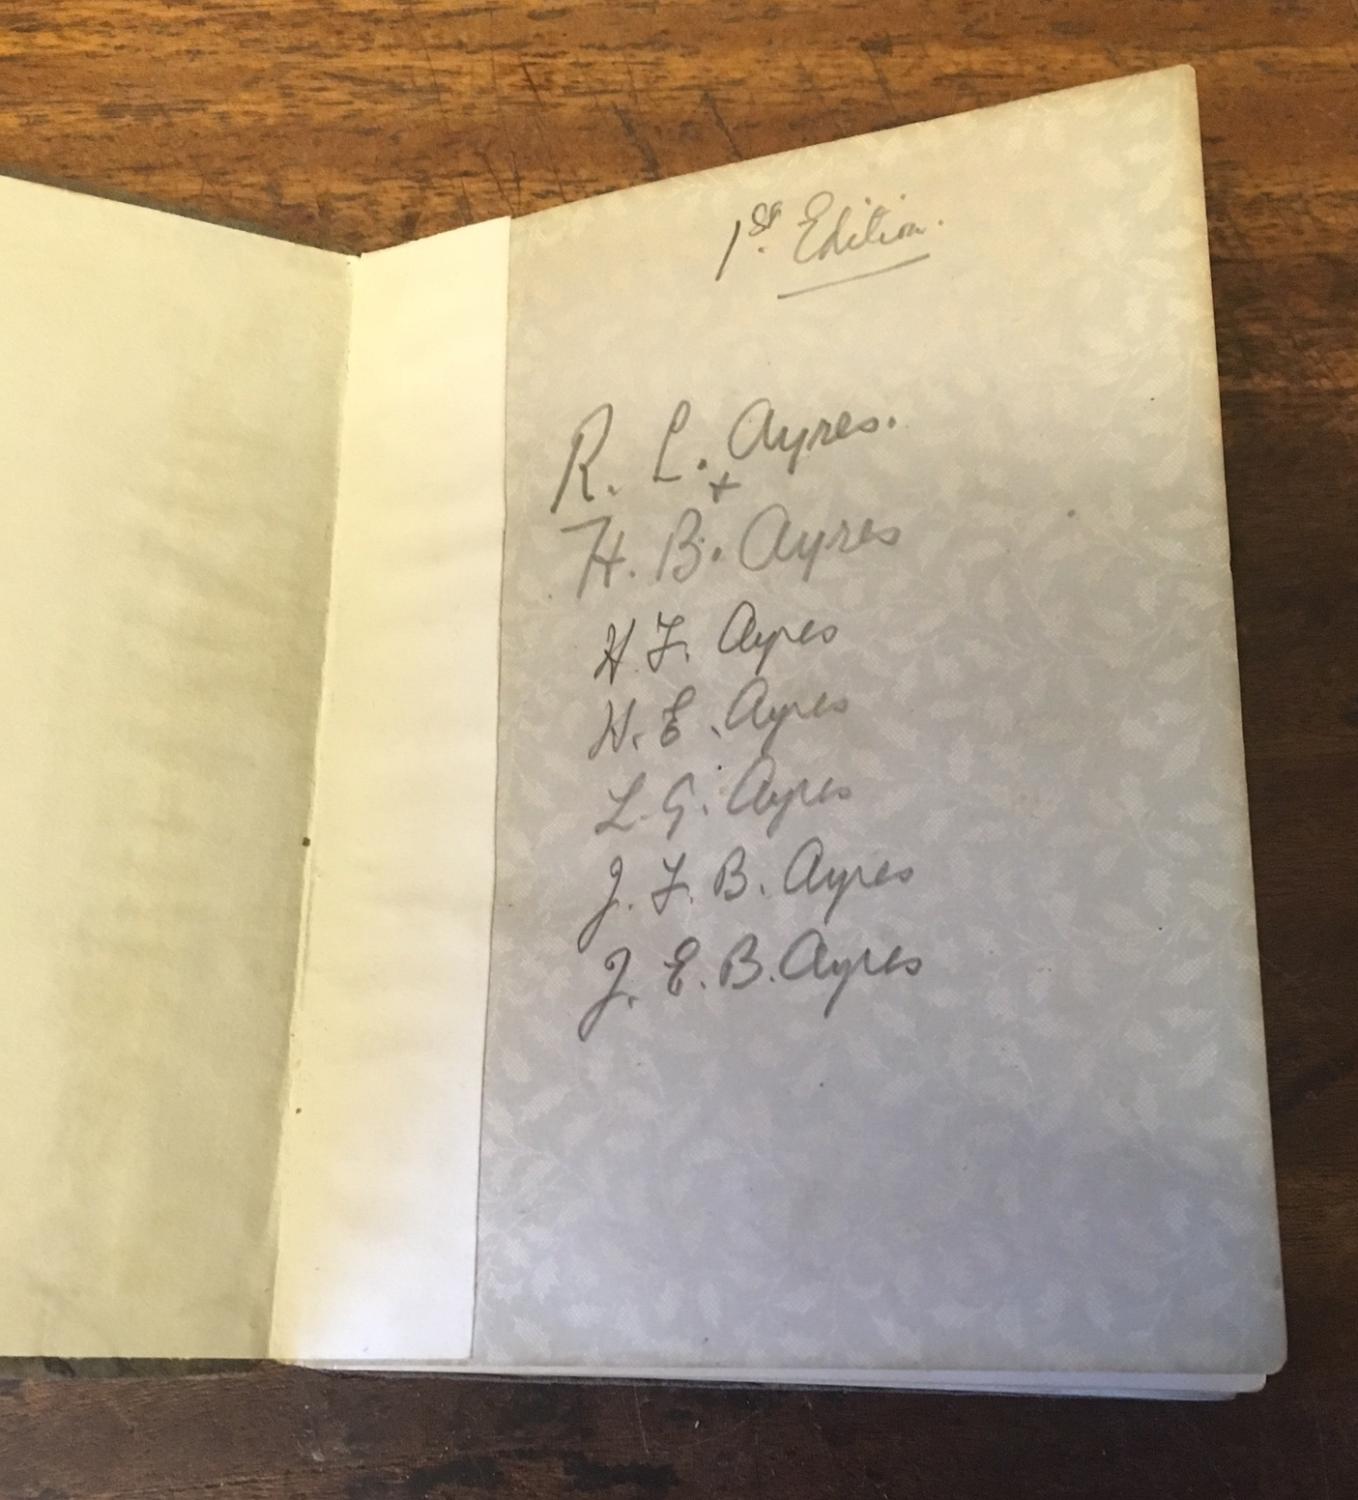 1st. Edition.
R. L. Ayres.
+
H. B. Ayres
H. F. Ayres
H. E. Ayres
L. G. Ayres
J. F. B. Ayres
J. E. B. Ayres